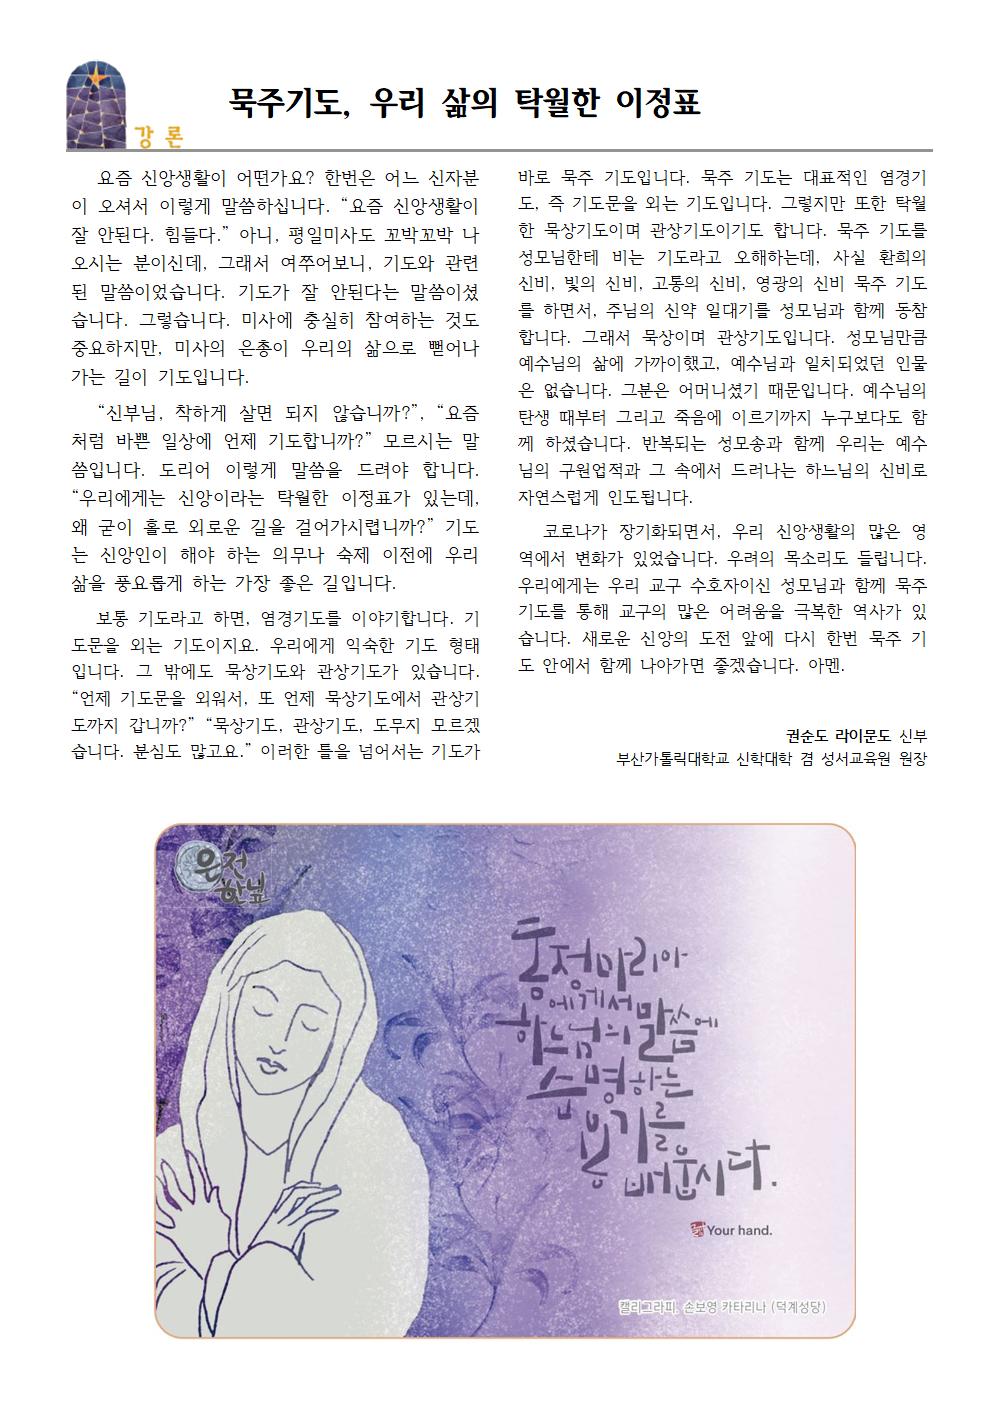 강 론
묵주기도, 우리 삶의 탁월한 이정표
요즘 신앙생활이 어떤가요? 한번은 어느 신자분
이 오셔서 이렇게 말씀하십니다. “요즘 신앙생활이
잘 안된다. 힘들다.” 아니, 평일미사도 꼬박꼬박 나
오시는 분이신데, 그래서 여쭈어보니, 기도와 관련
된 말씀이었습니다. 기도가 잘 안된다는 말씀이셨
습니다. 그렇습니다. 미사에 충실히 참여하는 것도
중요하지만, 미사의 은총이 우리의 삶으로 뻗어나
가는 길이 기도입니다.
“신부님, 착하게 살면 되지 않습니까?”, “요즘
처럼 바쁜 일상에 언제 기도합니까?” 모르시는 말
씀입니다. 도리어 이렇게 말씀을 드려야 합니다.
“우리에게는 신앙이라는 탁월한 이정표가 있는데,
왜 굳이 홀로 외로운 길을 걸어가시렵니까?” 기도
는 신앙인이 해야 하는 의무나 숙제 이전에 우리
삶을 풍요롭게 하는 가장 좋은 길입니다.
보통 기도라고 하면, 염경기도를 이야기합니다. 기
도문을 외는 기도이지요. 우리에게 익숙한 기도 형태
입니다. 그 밖에도 묵상기도와 관상기도가 있습니다.
“언제 기도문을 외워서, 또 언제 묵상기도에서 관상기
도까지 갑니까?” “묵상기도, 관상기도, 도무지 모르겠
습니다. 분심도 많고요.” 이러한 틀을 넘어서는 기도가
바로 묵주 기도입니다. 묵주 기도는 대표적인 염경기
도, 즉 기도문을 외는 기도입니다. 그렇지만 또한 탁월
한 묵상기도이며 관상기도이기도 합니다. 묵주 기도를
성모님한테 비는 기도라고 오해하는데, 사실 환희의
신비, 빛의 신비, 고통의 신비, 영광의 신비 묵주 기도
를 하면서, 주님의 신약 일대기를 성모님과 함께 동참
합니다. 그래서 묵상이며 관상기도입니다. 성모님만큼
예수님의 삶에 가까이했고, 예수님과 일치되었던 인물
은 없습니다. 그분은 어머니셨기 때문입니다. 예수님의
탄생 때부터 그리고 죽음에 이르기까지 누구보다도 함
께 하셨습니다. 반복되는 성모송과 함께 우리는 예수
님의 구원업적과 그 속에서 드러나는 하느님의 신비로
자연스럽게 인도됩니다.
코로나가 장기화되면서, 우리 신앙생활의 많은 영
역에서 변화가 있었습니다. 우려의 목소리도 들립니다.
우리에게는 우리 교구 수호자이신 성모님과 함께 묵주
기도를 통해 교구의 많은 어려움을 극복한 역사가 있
습니다. 새로운 신앙의 도전 앞에 다시 한번 묵주 기
도 안에서 함께 나아가면 좋겠습니다. 아멘.
권순도 라이문도 신부
부산가톨릭대학교 신학대학 겸 성서교육원 원장
은전
한닢
동정마리아
에게서
하느님의 말씀에
순명하는
용기를
배웁시다.
Your hand.
캘리그라피. 손보영 카타리나 (덕계성당)